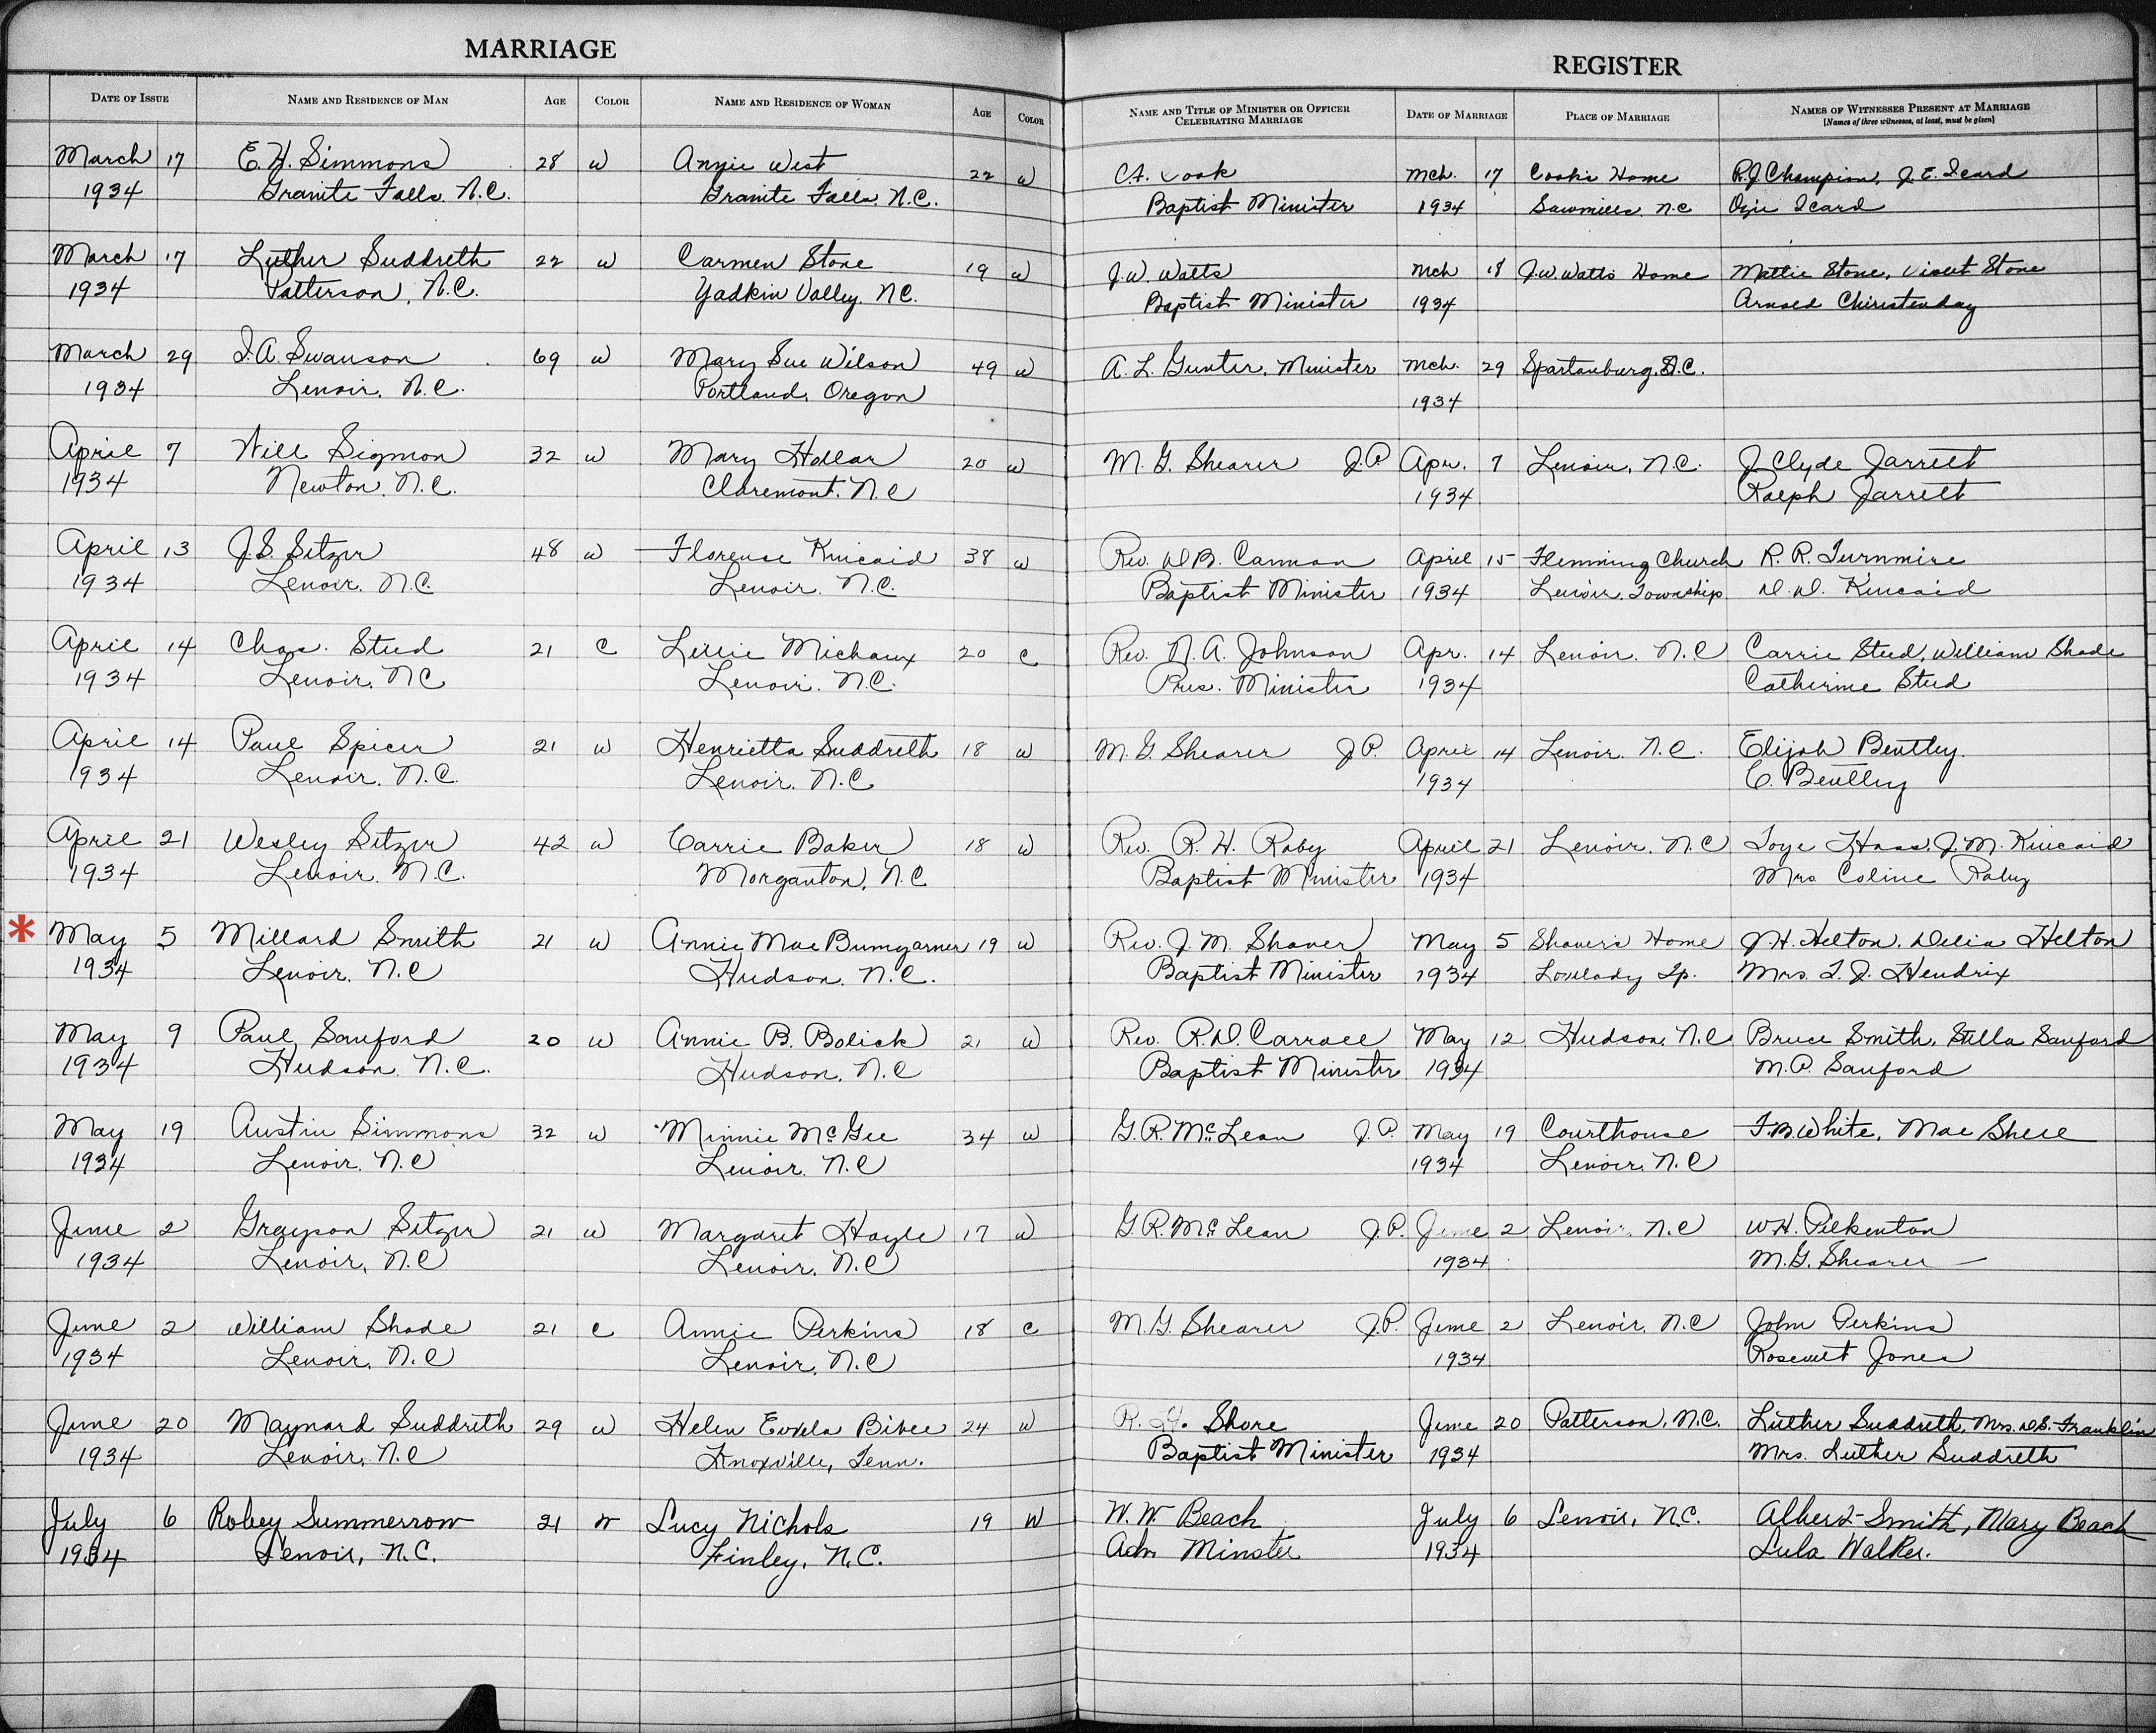 MARRIAGE
REGISTER
DATE OF ISSUE NAME AND RESIDENCE OF MAN AGE COLOR NAME AND RESIDENCE OF WOMAN AGE COLOR NAME AND TITLE OF MINISTER OR OFFICER CELEBRATING MARRIAGE DATE OF MARRIAGE PLACE OF MARRIAGE NAMES OF WITNESSES PRESENT AT MARRIAGE
[Names of three witnesses, at least, must be given]
March 17 E. H. Simmons 28 W Annie West 22 W Cook Mch. 17 Cook's Home R. J. Champion, J. E. Icard
1934 Granite Falls, N.C. Granite Falls, N.C. Baptist Minister 1934 Sawmills, N.C Icard
March 17 Luther Suddreth 22 W Carmen Stone 19 W J. W. Watts Mch 18 J. W. Watts Home Mattie Stone, Violet Stone
1934 Patterson, N.C. Yadkin Valley, N.C. Baptist Minister 1934 Arnold
March 29 J. A. Swanson 69 W Mary Sue Wilson 49 W A. L. Gunter, Minister Mch. 29 Spartanburg, S.C.
1934 Lenoir, N.C. Portland, Oregon 1934
April 7 Will Sigmon 32 W Mary Hollar 20 W M. G. Shearer J.P. Apr. 7 Lenoir, N.C. J. Clyde Jarrett
1934 Newton, N.C. Claremont, N.C 1934 Ralph Jarrett
April 13 J. S. Setzer 48 W Florence Kincaid 38 W Rev. D. B. Cannon April 15 Flemming Church R. R. Turnmire
1934 Lenoir, N.C. Lenoir, N.C. Baptist Minister 1934 Lenoir, Township D. D. Kincaid
April 14 Chas. Steed 21 C Lillie Michaux 20 C Rev. N. A. Johnson Apr. 14 Lenoir, N.C Carrie Steed, William Shade
1934 Lenoir, N C Lenoir, N.C. Pres. Minister 1934 Catherine Steed
April 14 Paul Spicer 21 W Henrietta Suddreth 18 W M. G. Shearer J.P. April 14 Lenoir, N.C. Elijah Bentley
1934 Lenoir, N.C. Lenoir, N.C 1934 E. Bentley
April 21 Wesley Setzer 42 W Carrie Baker 18 W Rev. R. H. Raby April 21 Lenoir, N.C Toye Hass, J. M. Kincaid
1934 Lenoir, N.C. Morganton, N.C Baptist Minister 1934 Mrs. Coline Raby
* May 5 Millard Smith 21 W Annie Mae Bumgarner 19 W Rev. J. M. Shaver May 5 Shaver's Home J. H. Helton, Delia Helton
1934 Lenoir, N.C Hudson, N.C. Baptist Minister 1934 Lovelady Tp. Mrs. T. J. Hendrix
May 9 Paul Sanford 20 W Annie B. Bolick 21 W Rev. R. D. Carroll May 12 Hudson, N.C Bruce Smith, Stella Sanford
1934 Hudson, N.C. Hudson, N.C Baptist Minister 1934 M. P. Sanford
May 19 Austin Simmons 32 W Minnie McGee 34 W G. R. McLean J.P. May 19 Courthouse F. B. White, Mae Shell
1934 Lenoir, N.C Lenoir, N.C 1934 Lenoir, N.C
June 2 Grayson Setzer 21 W Margaret Hayle 17 W G. R. McLean J.P. June 2 Lenoir, N.C W. H. Pilkenton
1934 Lenoir, N.C Lenoir, N.C 1934 M. G. Shearer
June 2 William Shade 21 C Annie Perkins 18 C M. G. Shearer J.P. June 2 Lenoir, N.C John Perkins
1934 Lenoir, N.C Lenoir, N.C 1934 Rosevelt Jones
June 20 Maynard Suddreth 29 W Helen Bibee 24 W R. H. Shore June 20 Patterson, N.C. Luther Suddreth, Mrs. D. B. Franklin
1934 Lenoir, N.C Knoxville, Tenn. Baptist Minister 1934 Mrs. Luther Suddreth
July 6 Robey Summerrow 21 W Lucy Nichols 19 W W. W. Beach July 6 Lenoir, N.C. Albert Smith, Mary Beach
1934 Lenoir, N.C. Finley, N.C. Adv. Minster 1934 Lula Walker.